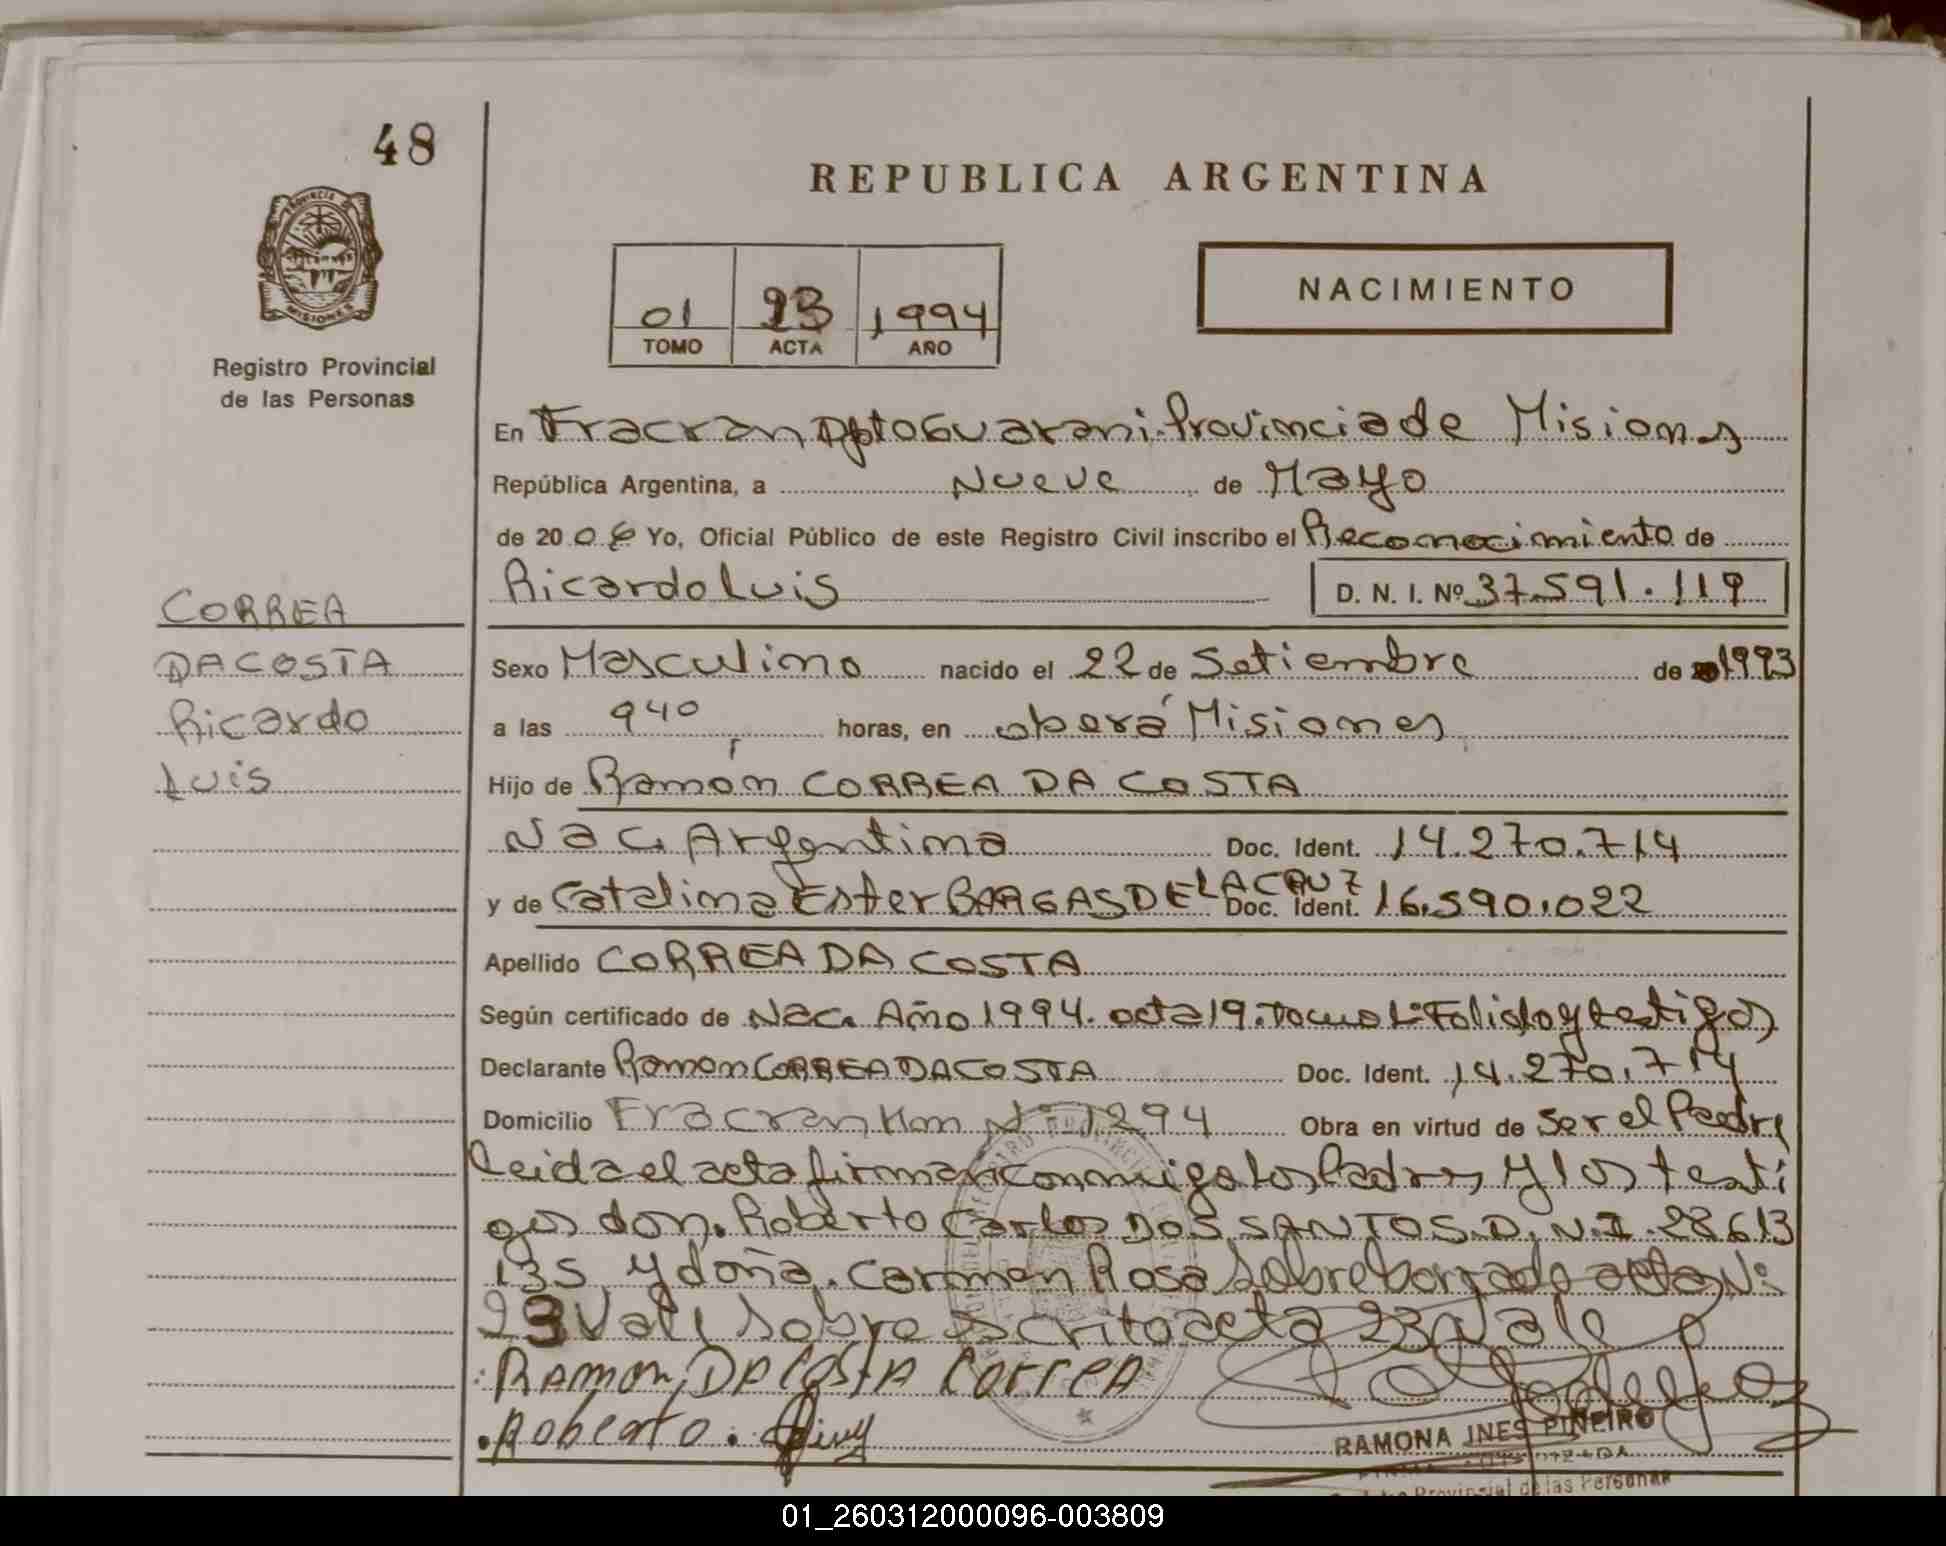 48
REPUBLICA ARGENTINA
PROVINCIA DE
MISIONES
Registro Provincial
de las Personas
01 23 1994
TOMO ACTA AÑO
NACIMIENTO
En Fracran Dpto Guarani Provincia de Misiones
República Argentina, a Nueve de Mayo
de 20 06 Yo, Oficial Público de este Registro Civil inscribo el Reconocimiento de
Ricardo Luis D. N. I. Nº 37.591.119
CORREA
DA COSTA
Ricardo
Luis
Sexo Masculino nacido el 22 de Setiembre de 1993
a las 940 horas, en oberá Misiones
Hijo de Ramón CORREA DA COSTA
Nac. Argentina Doc. Ident. 14.270.714
y de Catalina Ester BARGAS DE LA CRUZ Doc. Ident. 16.590.022
Apellido CORREA DA COSTA
Según certificado de Nac. Año 1994. acta 19. Tomo y testigos
Declarante Ramon CORREA DA COSTA Doc. Ident. 14.270.714
Domicilio Fracran Km Nº 1294 Obra en virtud de ser el Padre
Leida el acta firman conmigo los Padres y los testi
gos don. Roberto Carlos DOS SANTOS. D. N. I. 28.613
135 y doña. Carmen Rosa Sobre borrado acta Nº
23 Vale Sobre escrito acta 23 Vale
Ramon DA COSTA CORREA
Roberto.
RAMONA INES PIÑEIRO
Provincial de las Personas
01_260312000096-003809